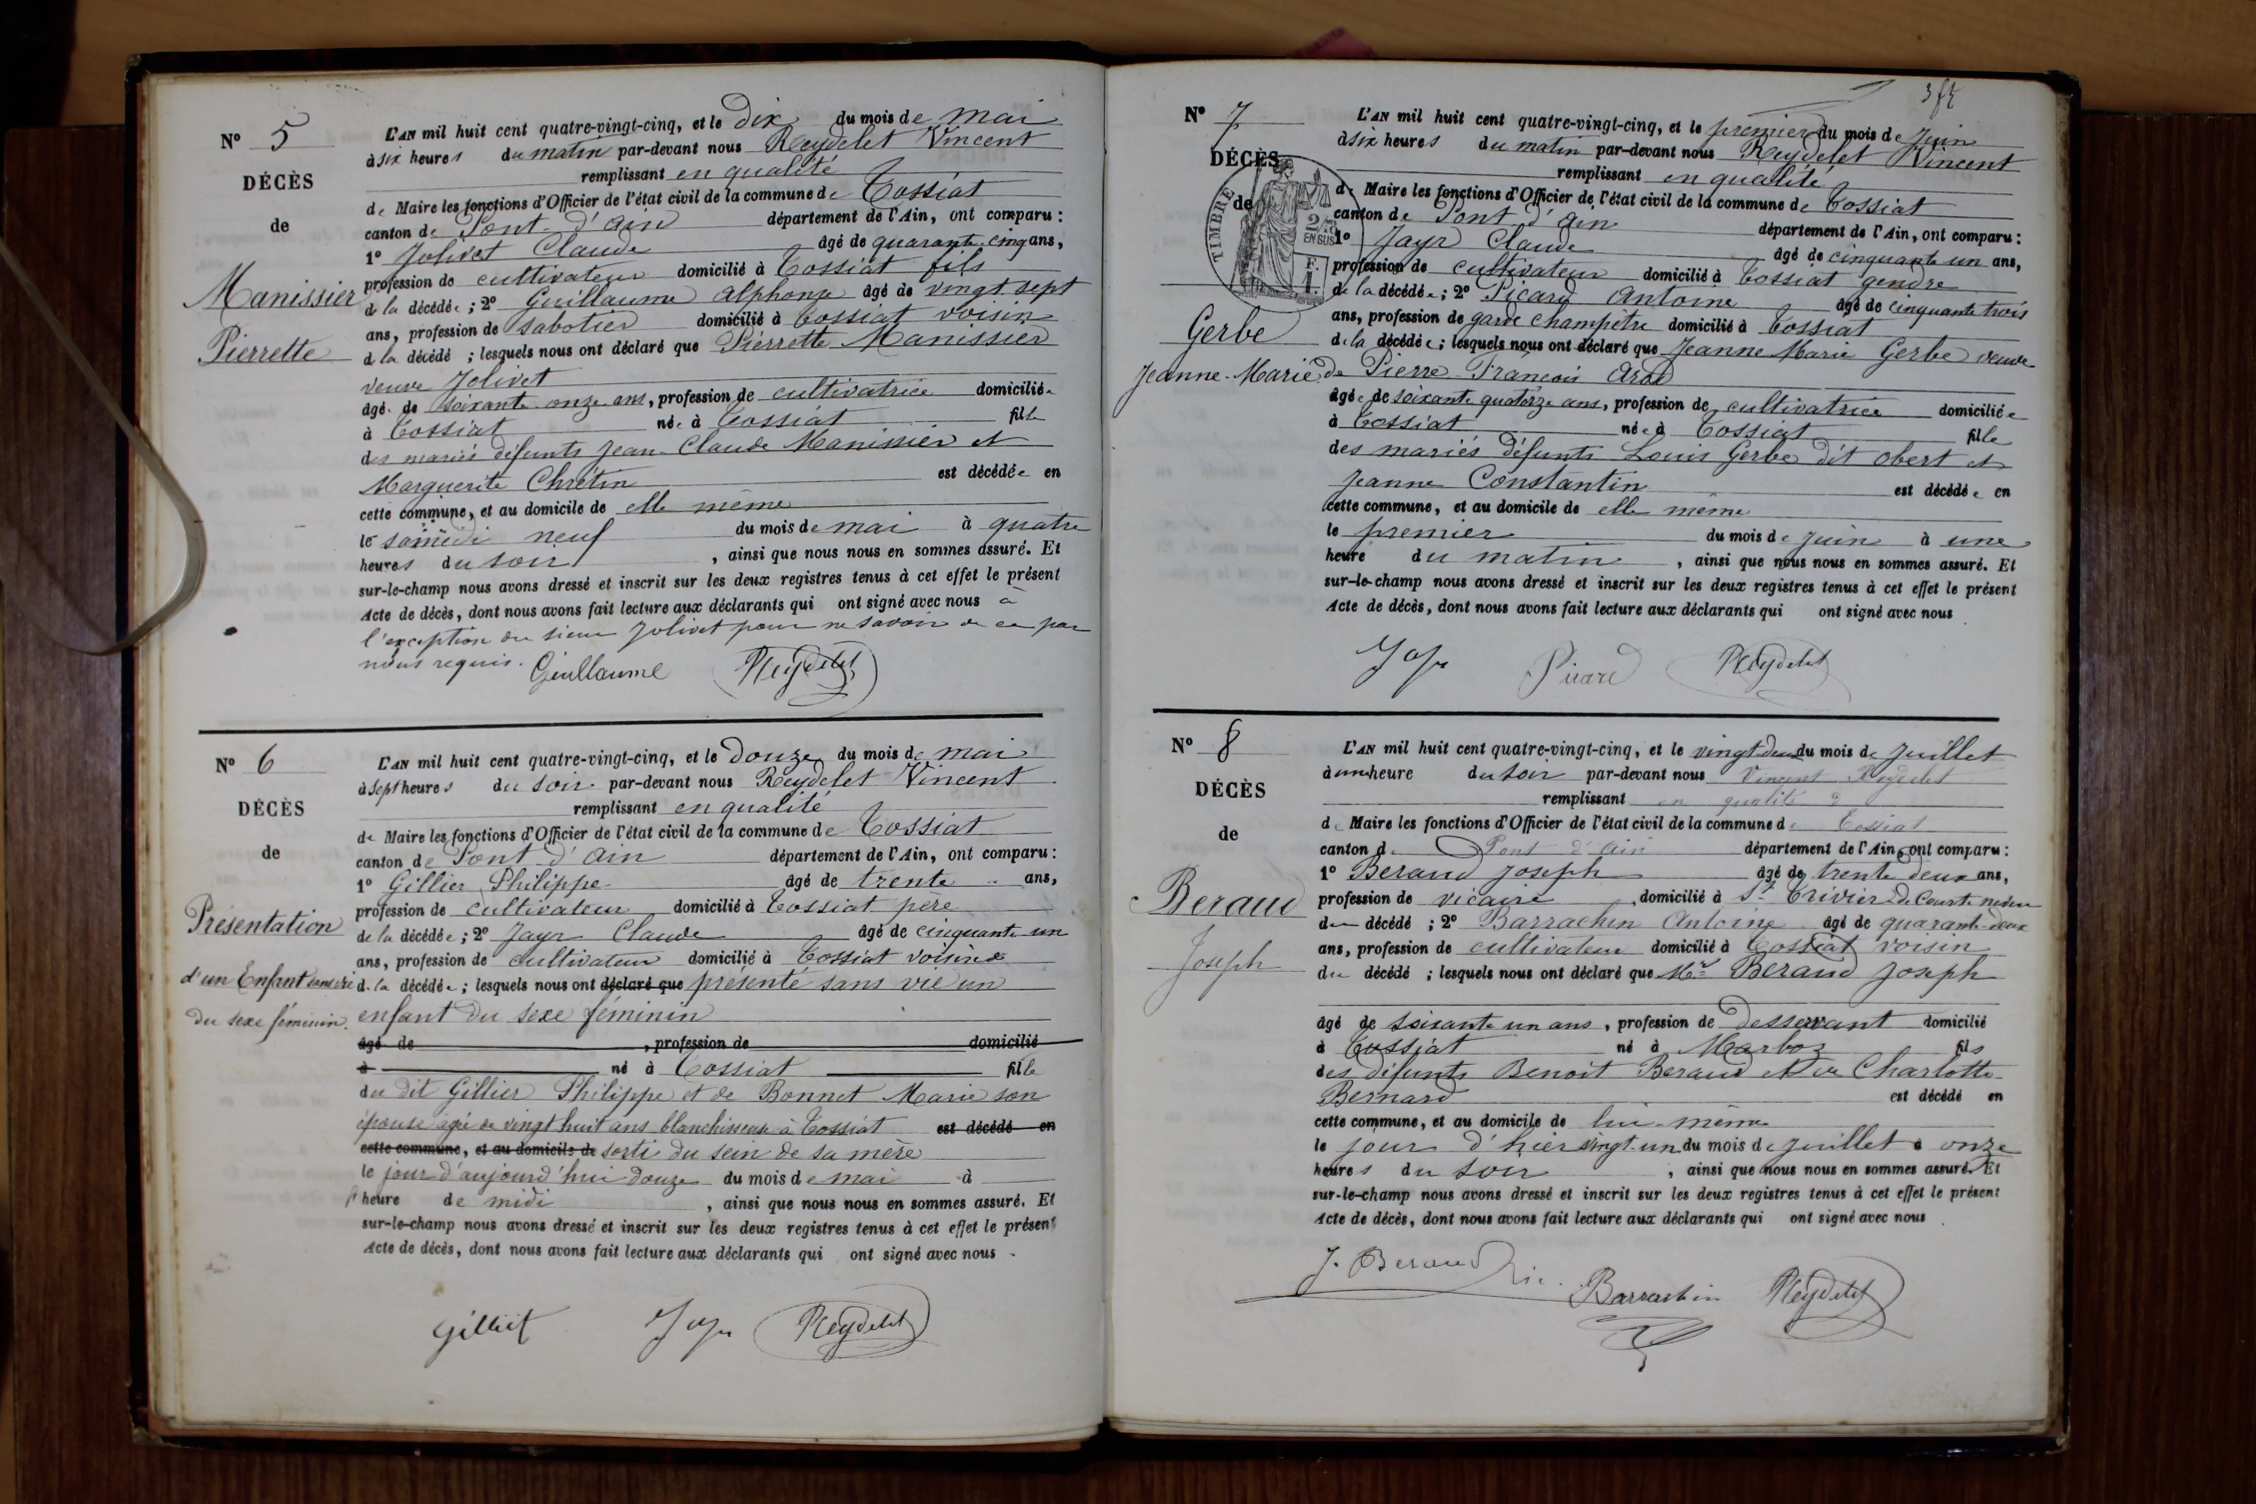 N° 5
DÉCÈS
de
Manissier
Pierrette
L'AN mil huit cent quatre-vingt-cinq, et le Dix du mois de mai
à six heures du matin par-devant nous Reydelet Vincent
remplissant en qualité
de Maire les fonctions d'Officier de l'état civil de la commune de Tossiat
canton de Pont-d'ain département de l'Ain, ont comparu :
1° Jolivet Claude âgé de quarante-cinq ans,
profession de cultivateur domicilié à Tossiat fils
de la décédée ; 2° Guillaume alphonse âgé de vingt sept
ans, profession de sabotier domicilié à Tossiat voisin
d la décédé ; lesquels nous ont déclaré que Pierrette Manissier
veuve Jolivet
âgé de soixante-onze ans, profession de cultivatrice domiciliée
à Tossiat née à Tossiat fille
des mariés défunts Jean-Claude Manissier et
Marguerite Chrétin est décédée en
cette commune, et au domicile de elle même
le samedi neuf du mois de mai à quatre
heures du soir, ainsi que nous nous en sommes assuré. Et
sur-le-champ nous avons dressé et inscrit sur les deux registres tenus à cet effet le présent
Acte de décès, dont nous avons fait lecture aux déclarants qui ont signé avec nous à
l'exception du sieur Jolivet pour ne savoir de ce par
nous requis. Guillaume Reydelet
N° 6
DÉCÈS
de
Présentation
d'un Enfant sans vie
du sexe féminin.
L'AN mil huit cent quatre-vingt-cinq, et le Douze du mois de mai
à sept heures du soir par-devant nous Reydelet Vincent
remplissant en qualité
de Maire les fonctions d'Officier de l'état civil de la commune de Tossiat
canton de Pont-d'ain département de l'Ain, ont comparu :
1° Gillier Philippe âgé de trente ans,
profession de cultivateur domicilié à Tossiat père
de la décédée ; 2° Jayr Claude âgé de cinquante-un
ans, profession de cultivateur domicilié à Tossiat voisin
d. la décédée ; lesquels nous ont déclaré que présenté sans vie un
enfant du sexe féminin
âgé de , profession de domicilié
à né à Tossiat fille
du dit Gillier Philippe et de Bonnet Marie son
épouse agée de vingt huit ans blanchisseuse à Tossiat est décédé en
cette commune, et au domicile de sorti du sein de sa mère
le jour d'aujourd'hui douze du mois de mai à
heure de midi, ainsi que nous nous en sommes assuré. Et
sur-le-champ nous avons dressé et inscrit sur les deux registres tenus à cet effet le présent
Acte de décès, dont nous avons fait lecture aux déclarants qui ont signé avec nous .
Gilliet Jayr Reydelet
N° 7
DÉCÈS
de
TIMBRE
EN SUS
Gerbe
Jeanne-Marie
L'AN mil huit cent quatre-vingt-cinq, et le premier du mois de Juin
à six heures du matin par-devant nous Reydelet Vincent
remplissant en qualité
de Maire les fonctions d'Officier de l'état civil de la commune de Tossiat
canton de Pont d'ain département de l'Ain, ont comparu :
1° Jayr Claude âgé de cinquante un ans,
profession de cultivateur domicilié à Tossiat gendre
de la décédée ; 2° Picard Antoine âgé de cinquante trois
ans, profession de garde champêtre domicilié à Tossiat
de la décédée ; lesquels nous ont déclaré que Jeanne Marie Gerbe veuve
de Pierre-François
âgée de soixante quatorze ans, profession de cultivatrice domiciliée
à Tossiat née à Tossiat fille
des mariés défunts Louis Gerbe dit obert et
Jeanne Constantin est décédée en
cette commune, et au domicile de elle même
le premier du mois de Juin à une
heure du matin, ainsi que nous nous en sommes assuré. Et
sur-le-champ nous avons dressé et inscrit sur les deux registres tenus à cet effet le présent
Acte de décès, dont nous avons fait lecture aux déclarants qui ont signé avec nous
Jayr Picard Reydelet
N° 8
DÉCÈS
de
Beraud
Joseph
L'AN mil huit cent quatre-vingt-cinq, et le vingt-deux du mois de Juillet
à une heure du soir par-devant nous Vincent Reydelet
remplissant en qualité
de Maire les fonctions d'Officier de l'état civil de la commune de Tossiat
canton de Pont d'ain département de l'Ain, ont comparu :
1° Beraud Joseph âgé de trente deux ans,
profession de vicaire, domicilié à St Trivier de Courtes neveu
du décédé ; 2° Barrachin Antoine âgé de quarante-deux
ans, profession de cultivateur domicilié à Tossiat voisin
du décédé ; lesquels nous ont déclaré que Mr Beraud Joseph
âgé de soixante un ans, profession de desservant domicilié
à Tossiat né à Marboz fils
des défunts Benoit Beraud et de Charlotte
Bernard est décédé en
cette commune, et au domicile de lui-même
le jour d'hier vingt-un du mois de Juillet à onze
heures du soir, ainsi que nous nous en sommes assuré. Et
sur-le-champ nous avons dressé et inscrit sur les deux registres tenus à cet effet le présent
Acte de décès, dont nous avons fait lecture aux déclarants qui ont signé avec nous
J. Beraud vic. Barrachin Reydelet